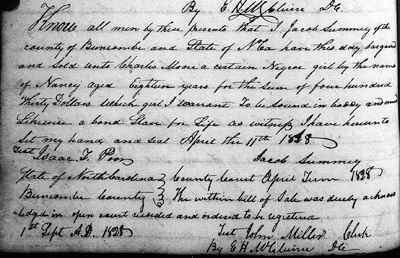 By E H McClure DC
Know all men by these presents that I Jacob Summey of the
county of Buncombe and State of N Ca have this day bargand
and Sold unto Charles Mone a certain Negroe girl by the name
of Nancy aged Eighteen years for the Sum of four hundred
thirty Dollars. Which girl I warrant To be Sound in body and mind
Likewise a bond Slave for Life as witness I have hereunto
set my hand and seal April the 11th 1828
Test
Isaac T. Poor Jacob Summey
State of North Carolina } County Court April Term 1828
Buncombe County } The within bill of Sale was duely acknow
ledged in open court recorded and ordered to be registered
1st Sept A.D. 1828 Test John Miller Clerk
By E H McClure DC